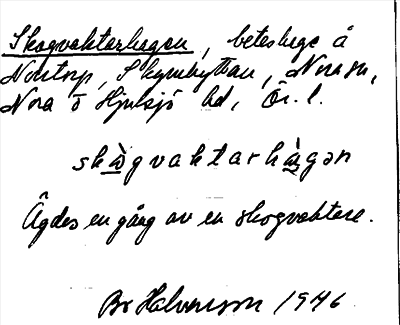 Skogvaktarhagen, beteshage å
Norrtorp, Skrumhyttan, Nora sn,
Nora o Hjulsjö hd, Ör. l.
skò̱gvaktarhà̱gən
Ägdes en gång av en skogvaktare.
Br Halvarsson 1946